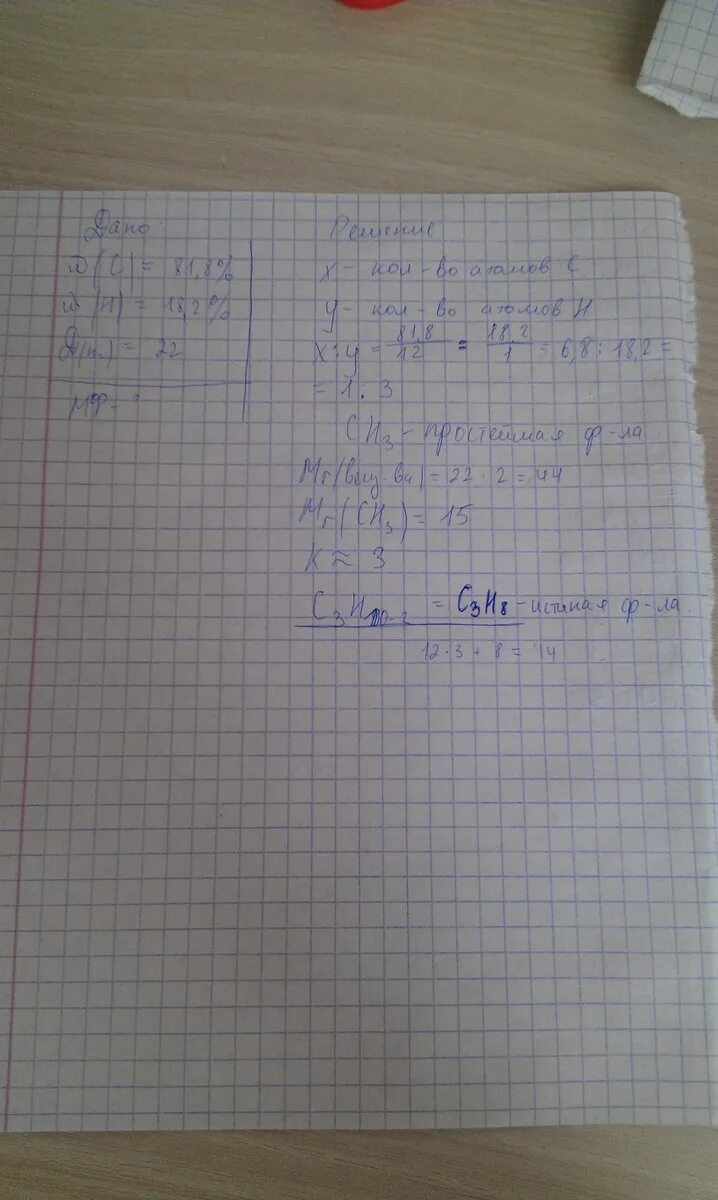 Дано:
w(C) = 81,8%
w(H) = 18,2%
= 22
МФ - ?
Решение
x - кол-во атомов C
y - кол-во атомов H
x:y = 81,8/12 = 18,2/1 = 6,8 : 18,2 =
= 1 : 3
CH₃ - простейшая ф-ла
Mr( ) = 22 · 2 = 44
Mr(CH₃) = 15
K ≈ 3
= C₃H₈ - истиная ф-ла.
12·3 + 8 = 44